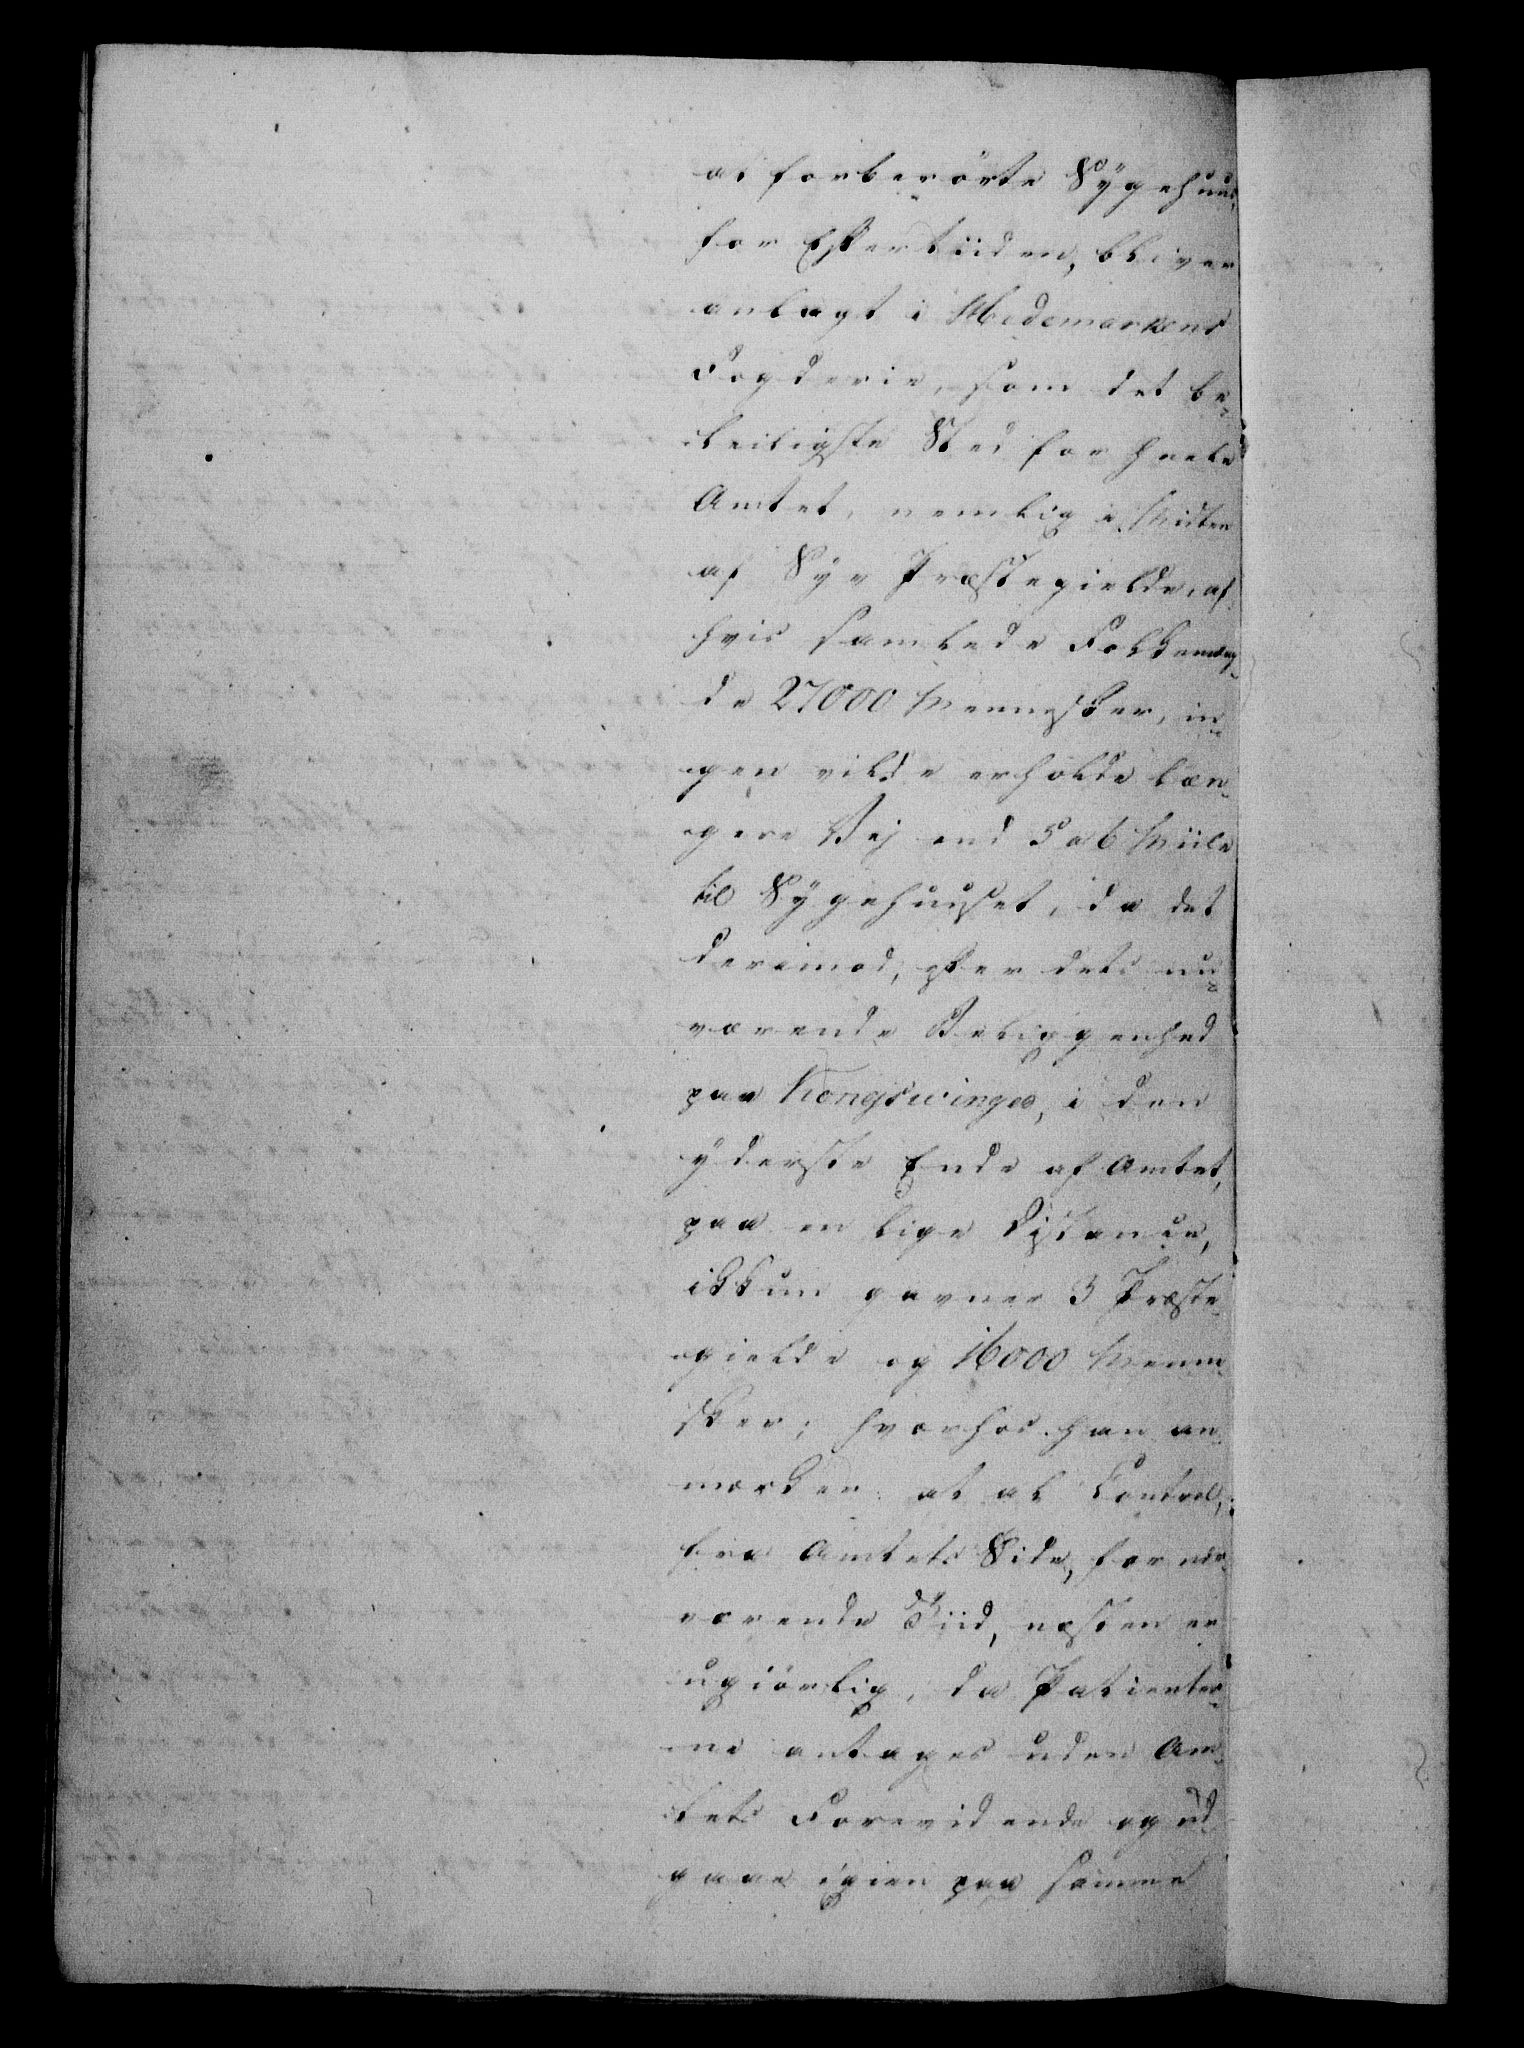 at forberörte Sÿgehuus,
for Eftertiiden, bliver
anlagt i Hedemarkens
Fogderie, som det be¬
leiligste Sted for heele
Amtet, nemlig i Midten
af Syv Præstegielde, af
hvis samlede Folkemæng¬
de 27000 Mennesker, in¬
gen vilde erholde læn¬
gere Vej end 5 a 6 Miile
til Sÿgehuuset, da det
derimod, efter dets nu¬
værende Beliggenhed
paa Kongswinger, i den
ÿderste Ende af Amtet,
paa en lige Distance,
ikkun gavner 3 Præste¬
gielde og 16000 Menne
sker; hvorhos han an¬
mærker at al Control,
fra Amtets Side, for nær¬
værende Tiid, næsten er
ugiörlig, da Patienter¬
ne antages uden Am¬
tets Forevidende og ud¬
gaae igien paa samme